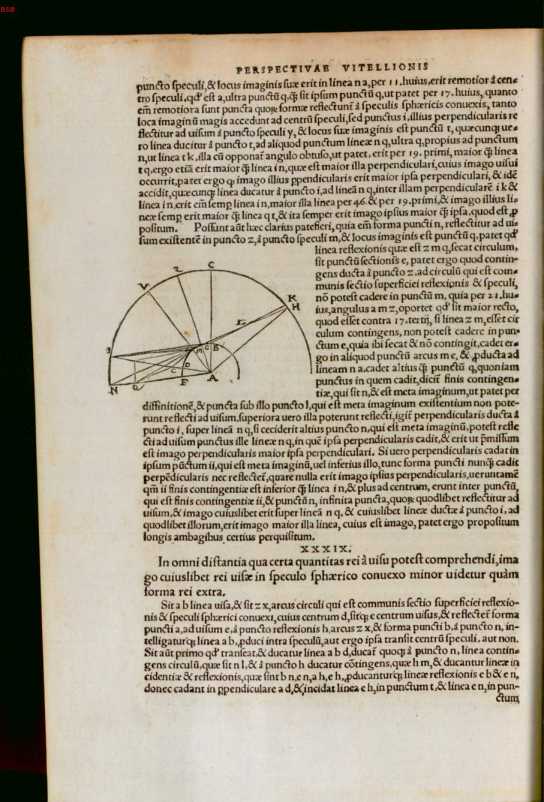 PERSPECTIVAE VITELLIONIS
puncto speculi, & locus imaginis suæ erit in linea n a, per 11. huius, erit remotior à cen-
tro speculi, qđ est a, ultra punctũ q, q̃ sit ipsum punctũ q, ut patet per 17. huius, quanto
em̃ remotiora sunt puncta quorũ formæ reflectunt᷑ à speculis sphæricis conuexis, tanto
loca imaginũ magis accedunt ad centrũ speculi, sed punctus i, illius perpendicularis re
flectitur ad uisum à puncto speculi y, & locus suæ imaginis est punctũ t, quæcunq; ue-
ro linea ducitur à puncto t, ad aliquod punctum lineæ n q, ultra q, propius ad punctum
n, ut linea t k, illa cũ opponat᷑ angulo obtuso, ut patet, erit per 19. primi, maior q̃ linea
t q, ergo etiã erit maior q̃ linea i n, quæ est maior illa perpendiculari, cuius imago uisui
occurrit, patet ergo qͥ imago illius ꝑpendicularis erit maior ipsa perpendiculari, & idẽ
accidit, quæcunq; linea ducatur à puncto i, ad lineã n q, inter illam perpendicularẽ i k &
linea i n, erit em̃ semp linea i n, maior illa per 46. & per 19. primi, & imago illius li-
neæ semꝑ erit maior q̃ linea q t, & ita semper erit imago ipsius maior q̃ ipsa, quod est ꝓ
positum. Possunt aũt hæc clarius patefieri, quia em̃ forma puncti n, reflectitur ad ui-
sum existentẽ in puncto z, à puncto speculi m, & locus imaginis est punctũ q, patet qđ
linea reflexionis quæ est z m q, secat circulum,
sit punctũ sectionis e, patet ergo quod contin-
gens ducta à puncto z, ad circulũ qui est com-
munis sectio superficiei reflexionis & speculi,
nõ potest cadere in punctũ m, quia per 21. hu-
ius, angulus a m z, oportet qđ sit maior recto,
quod esset contra 17. tertij, si linea z m, esset cir
culum contingens, non potest cadere in pun-
ctum e, quia ibi secat & nõ contingit, cadet er-
go in aliquod punctũ arcus m e, & ꝓducta ad
lineam n a, cadet altius q̃ punctũ q, quoniam
punctus in quem cadit, dicit᷑ finis contingen-
tiæ, qui sit n, & est meta imaginum, ut patet per
diffinitionẽ, & puncta sub illo puncto l, qui est meta imaginum existentium non pote-
runt reflecti ad uisum, superiora uero illa poterunt reflecti, igit᷑ perpendicularis ducta à
puncto i, super linea n q, si ceciderit altius puncto n, qui est meta imaginũ, potest refle
cti ad uisum punctus ille lineæ n q, in quẽ ipsa perpendicularis cadit, & erit ut p̃missum
est imago perpendicularis maior ipsa perpendiculari. Si uero perpendicularis cadat in
ipsum pũctum ii, qui est meta imaginũ, uel inferius illo, tunc forma puncti nunq̃ cadit
perpẽdicularis nec reflectet᷑, quare nulla erit imago ipsius perpendicularis, ueruntamẽ
qm̃ ii finis contingentiæ est inferior q̃ linea i n, & plus ad centrum, erunt inter punctũ,
qui est finis contingentiæ ii, & punctũ n, infinita puncta, quorũ quodlibet reflectitur ad
uisum, & imago cuiuslibet erit super lineã n q, & cuiuslibet lineæ ductæ à puncto i, ad
quodlibet illorum, erit imago maior illa linea, cuius est imago, patet ergo propositum
longis ambagibus, certius perquisitum.
XXXIX.
In omni distantia qua certa quantitas rei à uisu potest comprehendi, ima
go cuiuslibet rei uisæ in speculo sphærico conuexo minor uidetur quàm
forma rei extra.
Sit a b linea uisa, & sit z x, arcus circuli qui est communis sectio superficiei reflexio-
nis & speculi sphærici conuexi, cuius centrum d, sitq; e centrum uisus, & reflectet᷑ forma
puncti a, ad uisum e, à puncto reflexionis h, arcus z x, & forma puncti b, à puncto n, in-
telligaturq; linea a b, ꝓduci intra speculũ, aut ergo ipsa transit centrũ speculi, aut non.
Sit aũt primo qđ transeat, & ducatur linea a b d, ducat᷑ quoq; à puncto n, linea contin-
gens circulũ, quæ sit n l, & à puncto h ducatur cõtingens, quæ h m, & ducantur lineæ in
cidentiæ & reflexionis, quæ sint b n, e n, a h, e h, ꝓducanturq; lineæ reflexionis e b & e n,
donec cadant in ꝑpendiculare a d, & incidat linea e h, in punctum t, & linea e n, in pun-
ctum